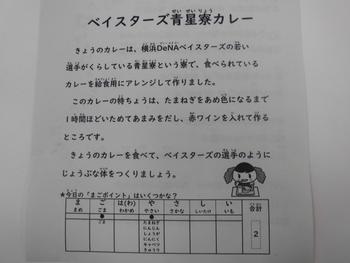 ベイスターズ青星寮カレー
きょうのカレーは、横浜DeNAベイスターズの若い
選手がくらしている青星寮という寮で、食べられている
カレーを給食用にアレンジして作りました。
このカレーの特ちょうは、たまねぎをあめ色になるまで
1時間ほどいためてあまみをだし、赤ワインを入れて作る
ところです。
きょうのカレーを食べて、ベイスターズの選手のように
じょうぶな体をつくりましょう。
★今日の「まごポイント」はいくつかな?
ま ご は(わ) や さ し い 合計
まめ ごま わかめ やさい さかな しいたけ いも
● ●
ごま たまねぎ 2
にんじん
しょうが
にんにく
キャベツ
きゅうり